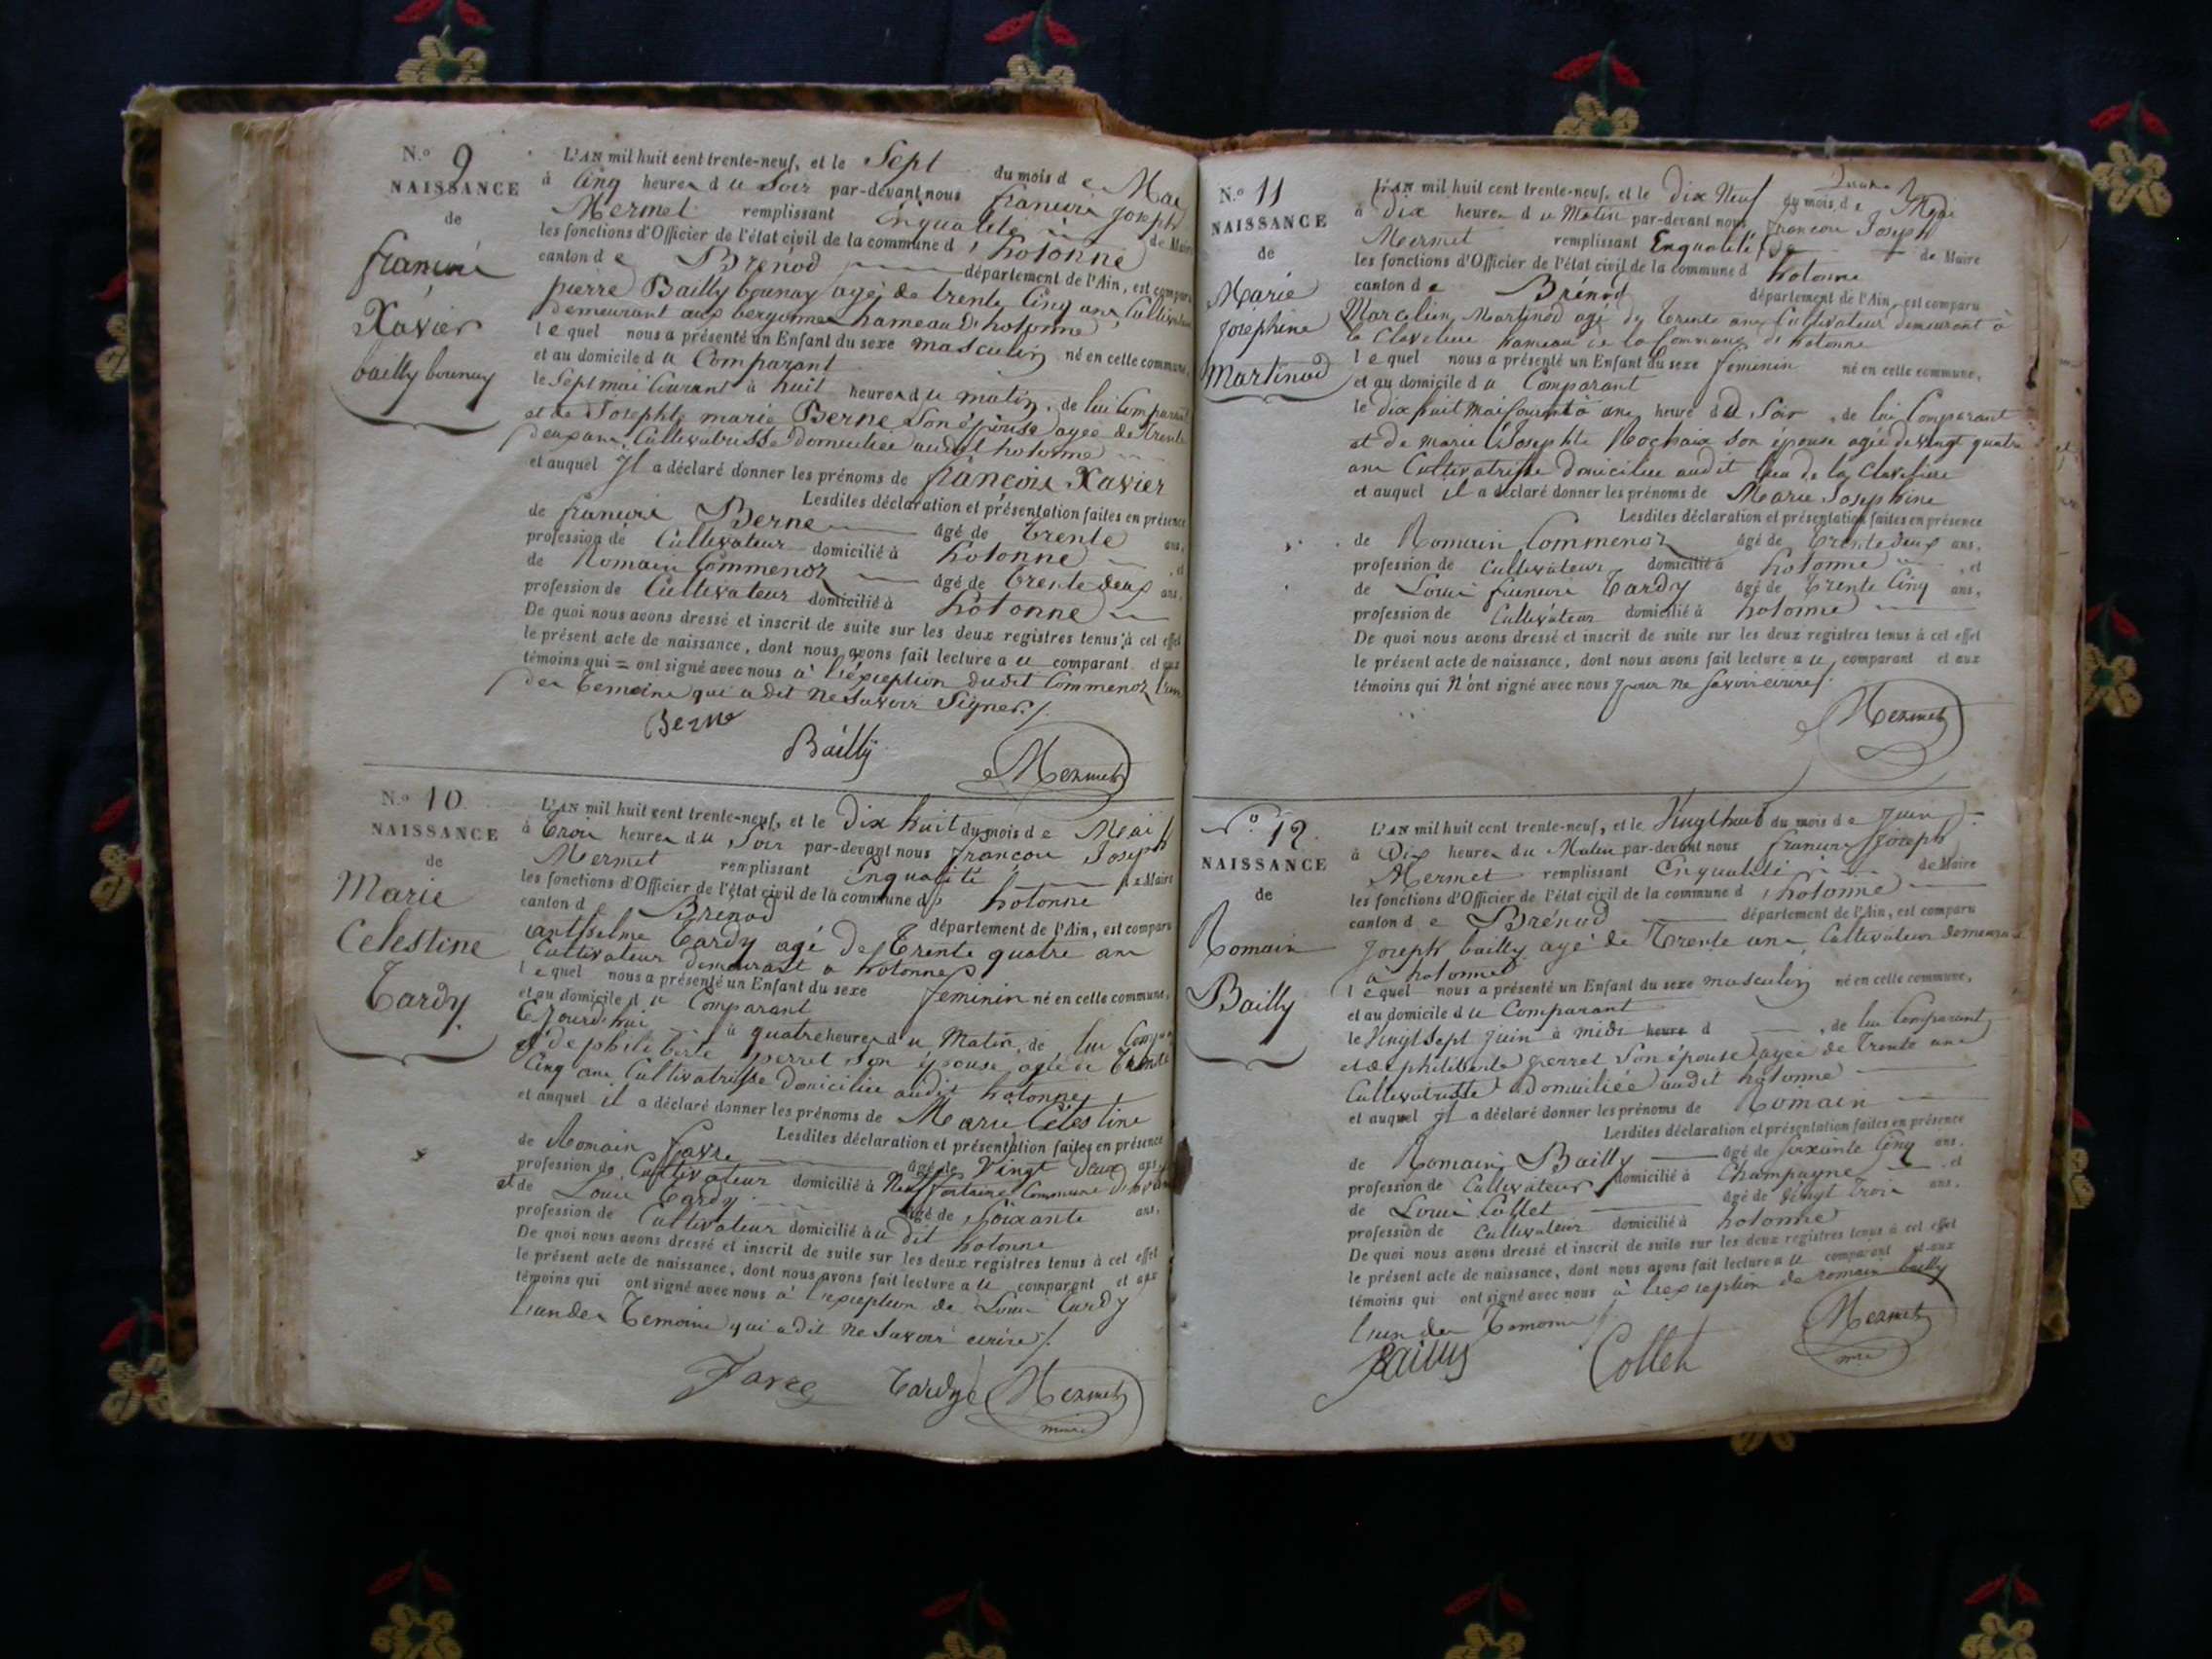 N.o 9
NAISSANCE
de
françois
Xavier
bailly bounay
L'AN mil huit cent trente-neuf, et le Sept du mois d e Mai
à Cinq heures d u Soir par-devant nous françois Joseph
Mermet remplissant Enqualité de Maire
les fonctions d'Officier de l'état civil de la commune d' hotonne
canton d e Brénod département de l'Ain, est comparu
pierre Bailly bounay agé de trente Cinq ans Cultivateur
demeurant aux bergonnes hameau d'hotonne
l e quel nous a présenté un Enfant du sexe masculin né en cette commune,
et au domicile d u Comparant
le Sept mai Courant à huit heures d u matin, de lui Comparant
et de Josephte marie Berne Son épouse agée de trente
deux ans Cultivatrisse domiciliée audit hotonne
et auquel Il a déclaré donner les prénoms de françois Xavier
Lesdites déclaration et présentation faites en présence
de françois Berne âgé de trente ans,
profession de Cultivateur domicilié à hotonne , et
de Romain Commenoz âgé de trente deux ans,
profession de Cultivateur domicilié à hotonne
De quoi nous avons dressé et inscrit de suite sur les deux registres tenus à cet effet
le présent acte de naissance, dont nous avons fait lecture a u comparant et aux
témoins qui = ont signé avec nous à l'éxception dudit Commenoz l'un
des temoins qui a dit ne Savoir Signer./.
Berne
Bailly
Mermet
N.o 10
NAISSANCE
de
Marie
Celestine
Tardy
L'AN mil huit cent trente-neuf, et le Dix huit du mois d e Mai
à trois heures d u Soir par-devant nous françois Joseph
Mermet remplissant Enqualité de Maire
les fonctions d'Officier de l'état civil de la commune d' hotonne
canton d e Brénod département de l'Ain, est comparu
anthelme Tardy agé de trente quatre ans
Cultivateur demeurant a hotonne
l e quel nous a présenté un Enfant du sexe feminin né en cette commune,
et au domicile d u Comparant
le Jourd'hui à quatre heures d u Matin, de lui Comparant
et de philiberte perret son épouse agée de trente
Cinq ans Cultivatrisse domiciliée audit hotonne
et auquel il a déclaré donner les prénoms de Marie Célestine
Lesdites déclaration et présentation faites en présence
de Romain favre âgé de Vingt deux ans,
profession de Cultivateur domicilié à Neuf fontaine Commune d'hotonne
et de Louis Tardy âgé de Soixante ans,
profession de Cultivateur domicilié à u dit hotonne
De quoi nous avons dressé et inscrit de suite sur les deux registres tenus à cet effet
le présent acte de naissance, dont nous avons fait lecture a u comparant et aux
témoins qui ont signé avec nous a l'éxception de Louis Tardy
l'un des temoins qui a dit ne Savoir écrire/.
Favre Tardy Mermet
maire
N.o 11
NAISSANCE
de
Marie
Josephine
Martinod
L'AN mil huit cent trente-neuf, et le Dix Neuf du mois d e Mai
à Dix heures d u Matin par-devant nous françois Joseph
Mermet remplissant Enqualité de de Maire
les fonctions d'Officier de l'état civil de la commune d hotonne
canton d e Brénod département de l'Ain, est comparu
Marcelin Martinod agé de trente ans Cultivateur demeurant à
la Claveliere hameau de la Commune d'hotonne
l e quel nous a présenté un Enfant du sexe feminin né en cette commune,
et au domicile d u Comparant
le dix huit Mai Courant à une heure d u Soir, de lui Comparant
et de marie Josephte Rochaix son épouse agée de vingt quatre
ans Cultivatrisse domiciliée audit lieu de la Claveliere
et auquel il a déclaré donner les prénoms de Marie Josephine
Lesdites déclaration et présentation faites en présence
de Romain Commenoz âgé de trente deux ans,
profession de Cultivateur domicilié à hotonne , et
de Louis françois Tardy âgé de trente Cinq ans,
profession de Cultivateur domicilié à hotonne
De quoi nous avons dressé et inscrit de suite sur les deux registres tenus à cet effet
le présent acte de naissance, dont nous avons fait lecture a u comparant et aux
témoins qui N'ont signé avec nous pour ne Savoir écrire/.
Mermet
N.o 12.
NAISSANCE
de
Romain
Bailly
L'AN mil huit cent trente-neuf, et le Vingt huit du mois d e Juin
à Dix heures du Matin par-devant nous françois Joseph
Mermet remplissant Enqualité de Maire
les fonctions d'Officier de l'état civil de la commune d' hotonne
canton d e Brénod département de l'Ain, est comparu
Joseph bailly agé de trente ans Cultivateur demeurant
a hotonne
l e quel nous a présenté un Enfant du sexe masculin né en cette commune,
et au domicile d u Comparant
le Vingt Sept Juin à midi heure d , de lui Comparant
et de philiberte perret Son épouse agée de trente ans
Cultivatrisse domiciliée audit hotonne
et auquel Il a déclaré donner les prénoms de Romain
Lesdites déclaration et présentation faites en présence
de Romain Bailly âgé de soixante Cinq ans,
profession de Cultivateur domicilié à Champagne , et
de Louis Collet âgé de vingt trois ans,
profession de Cultivateur domicilié à hotonne
De quoi nous avons dressé et inscrit de suite sur les deux registres tenus à cet effet
le présent acte de naissance, dont nous avons fait lecture a u comparant et aux
témoins qui ont signé avec nous à l'exception de romain bailly
l'un des temoins
Bailly Collet Mermet
mre